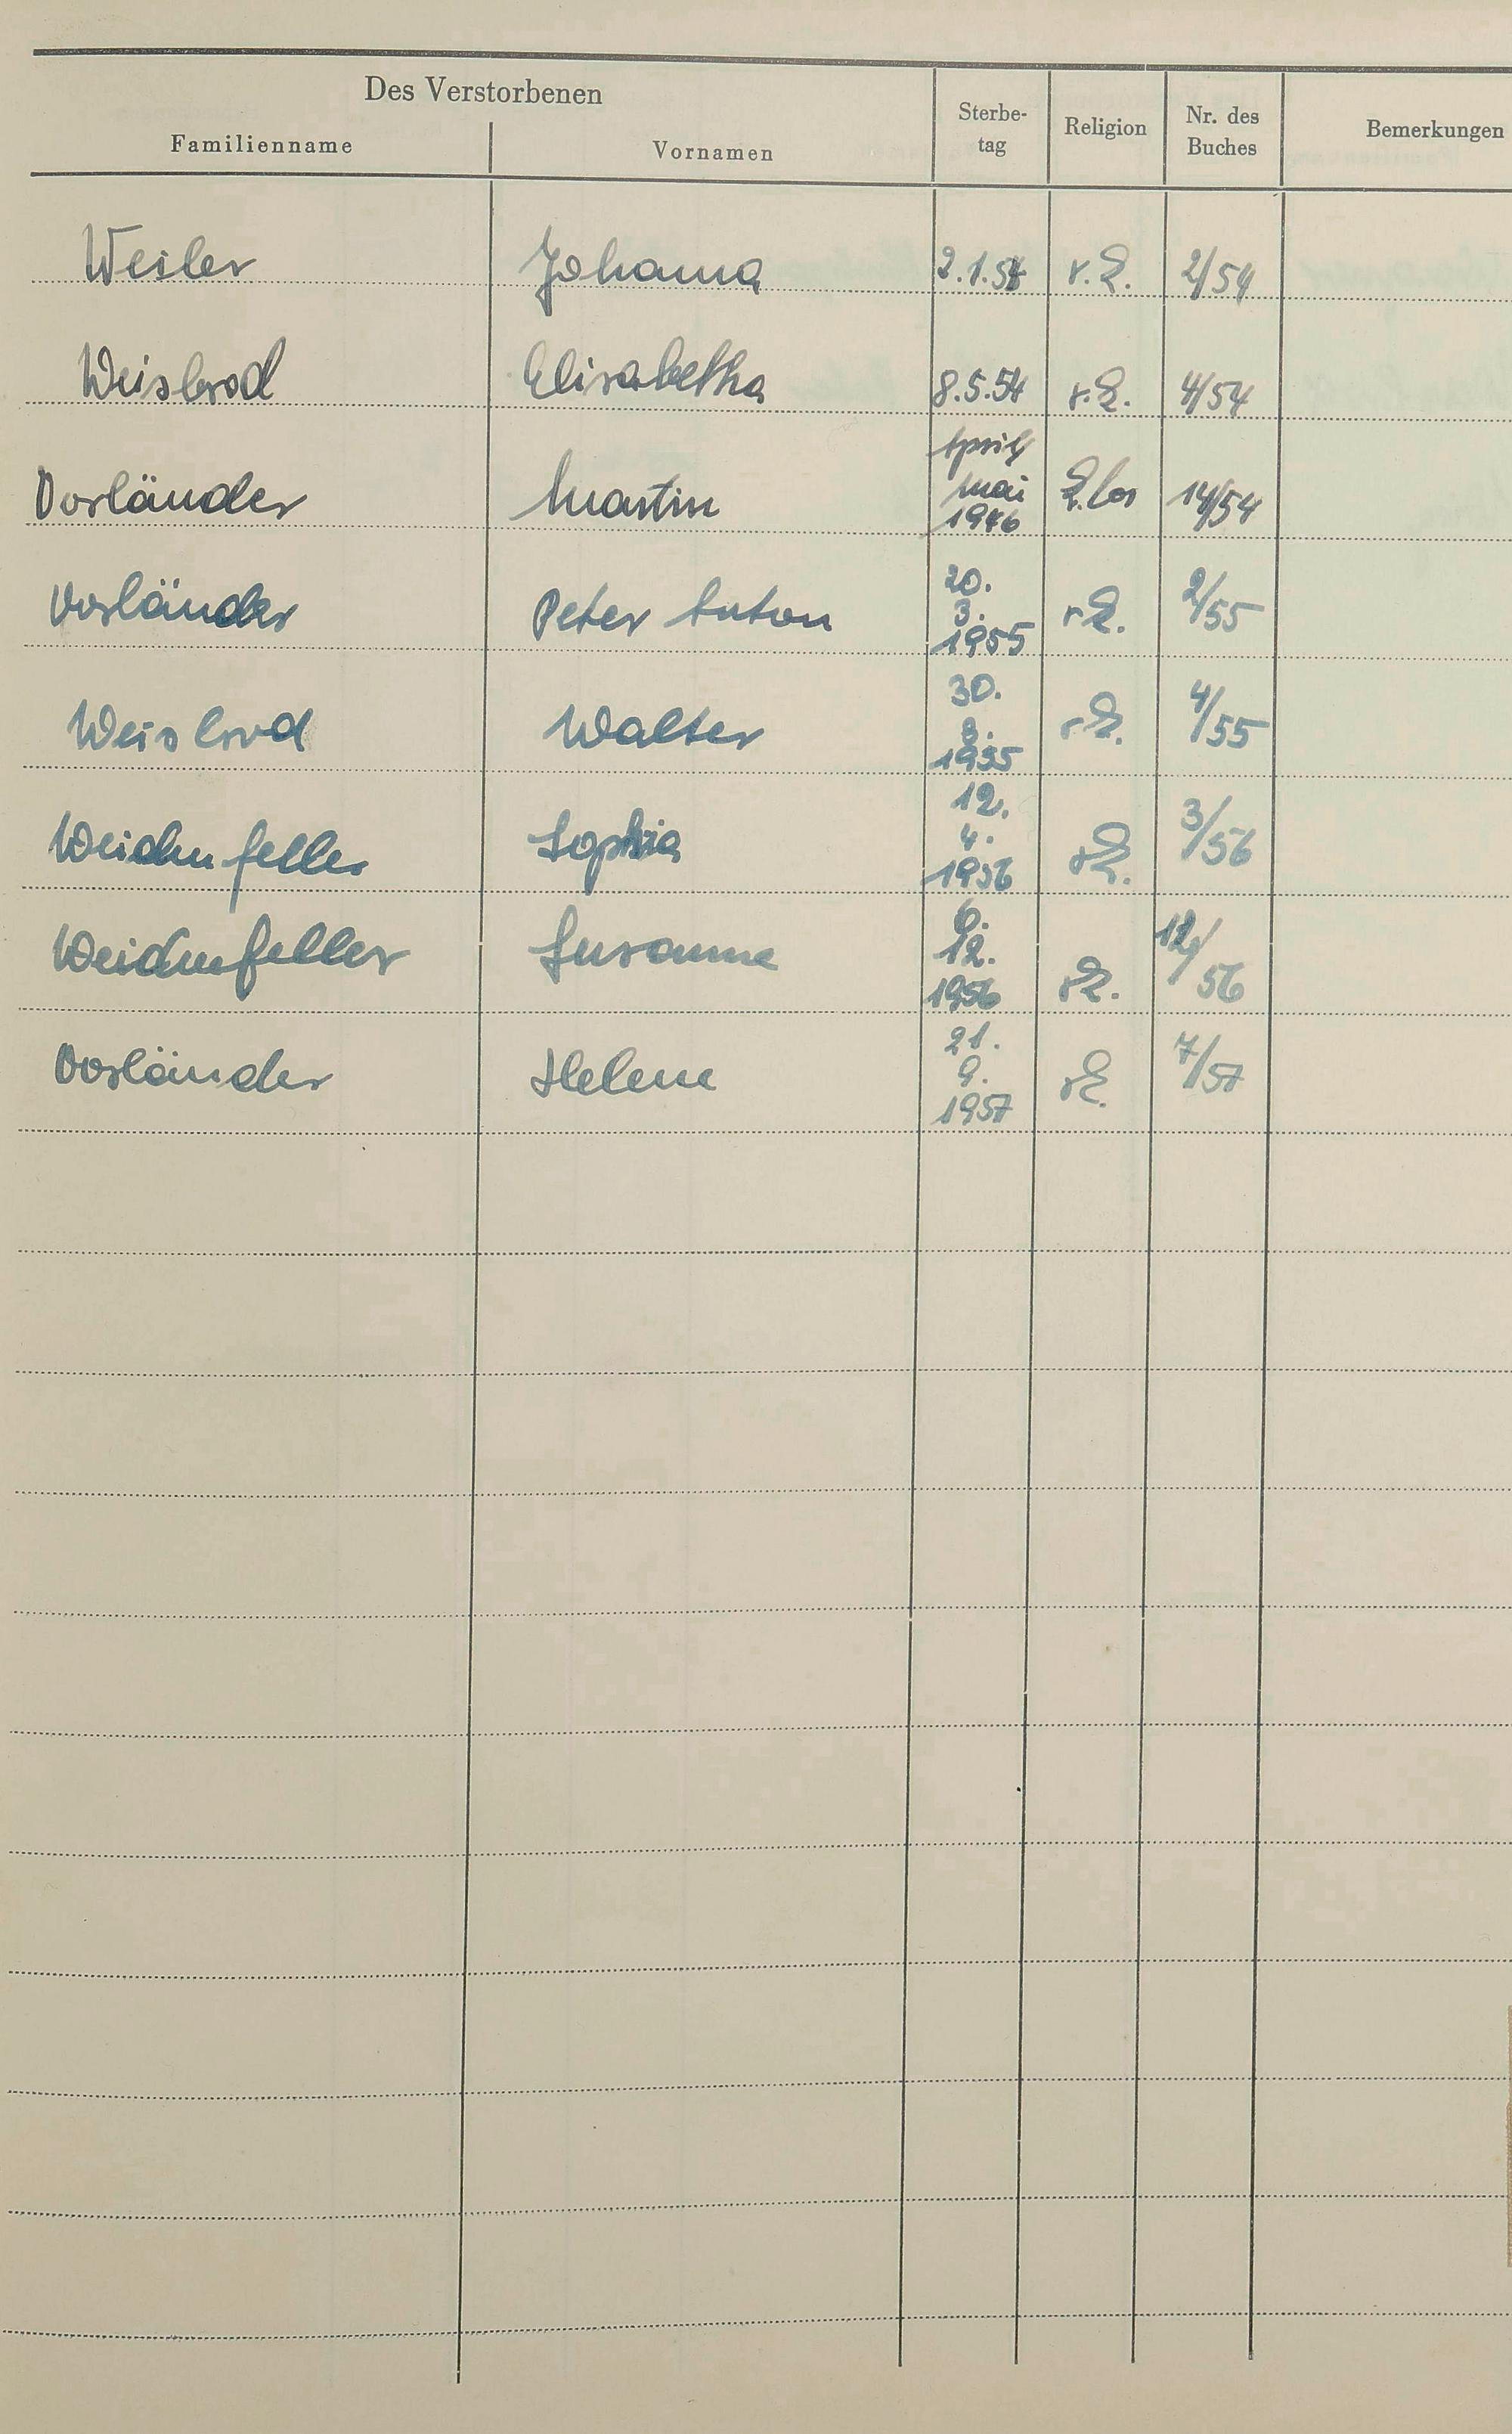 Des Verstorbenen
Familienname Vornamen Sterbe-tag Religion Nr. des Buches Bemerkungen
Weiler Johanna 2.1.54 r.K. 2/54
Weisbrod Elisabetha 8.5.54 r.K. 4/54
April
Mai
Vorländer Martin 1946 K.los 14/54
20.
3.
Vorländer Peter Anton 1955 r.K. 2/55
30.
8.
Weisbrod Walter 1955 r.K. 4/55
12.
4.
Weidenfeller Sophia 1956 rK. 3/56
6.
12.
Weidenfeller Susanne 1956 rK. 12/56
21.
9.
Vorländer Helene 1957 rK. 7/57